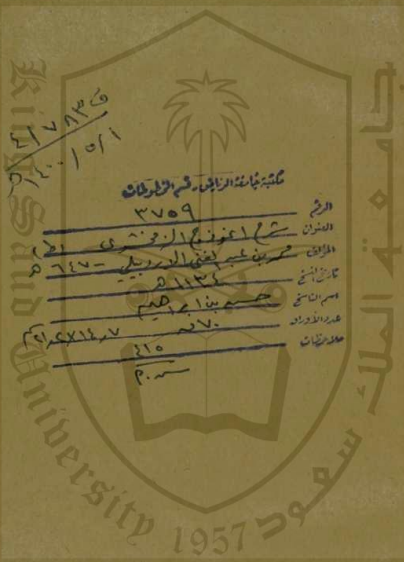 ف ٤/٧٨٣
١٤٠٠/٥/١
مكتبة جامعة الرياض - قسم المخطوطات
الرقم ٣٧٥٩
العنوان شرح انموذج الزمخشري
المؤلف محمد بن عبد الغني الاردبيلي - ٦٤٧ هـ
تاريخ النسخ ١١٣٤ هـ
اسم الناسخ حسن بن ابراهيم
عدد الأوراق ٧٠
ملاحظات
٤١٥
جامعة الملك سعود
King Saud University
1957